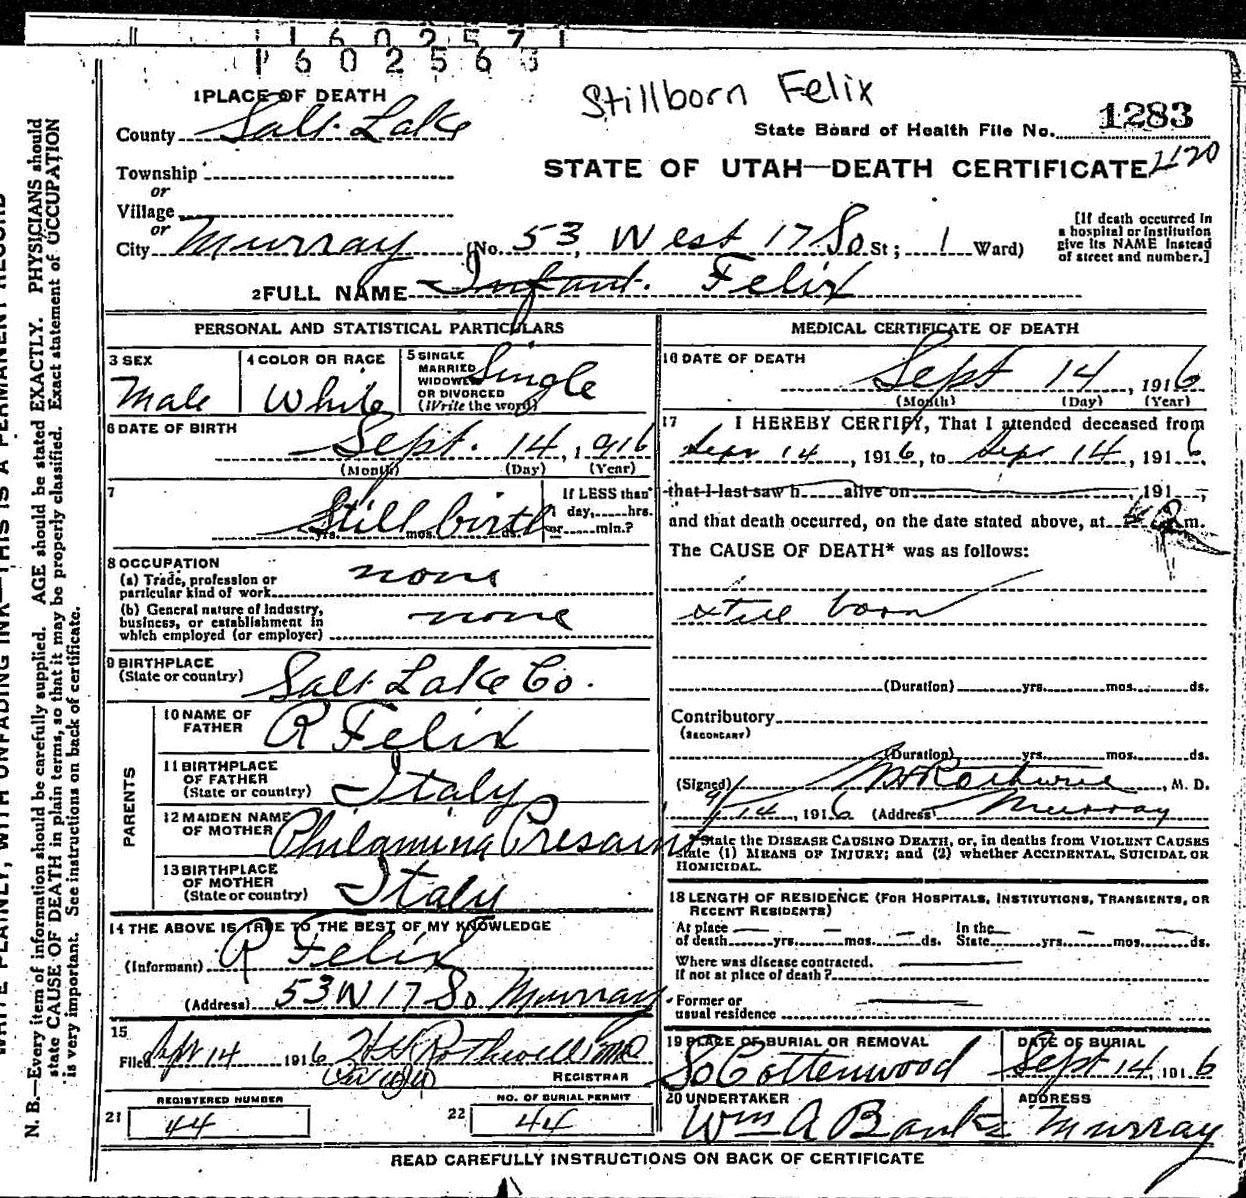 1602571
1602563
Stillborn Felix
1 PLACE OF DEATH
County Salt Lake
State Board of Health File No. 1283
Township
or
STATE OF UTAH—DEATH CERTIFICATE
Village
or
City Murray (No. 53 West 17 So St; 1 Ward)
[If death occurred in a hospital or institution give its NAME instead of street and number.]
2 FULL NAME Infant. Felix
PERSONAL AND STATISTICAL PARTICULARS
3 SEX
Male
4 COLOR OR RACE
White
5 SINGLE MARRIED WIDOWED OR DIVORCED (Write the word)
Single
6 DATE OF BIRTH
Sept. 14, 1916
(Month) (Day) (Year)
7
Still birth
yrs. mos. ds.
If LESS than day, hrs. or min.?
8 OCCUPATION
(a) Trade, profession or particular kind of work none
(b) General nature of industry, business, or establishment in which employed (or employer) none
9 BIRTHPLACE
(State or country) Salt Lake Co.
PARENTS
10 NAME OF FATHER R Felix
11 BIRTHPLACE OF FATHER (State or country) Italy
12 MAIDEN NAME OF MOTHER Philamina
13 BIRTHPLACE OF MOTHER (State or country) Italy
14 THE ABOVE IS TRUE TO THE BEST OF MY KNOWLEDGE
(Informant) R Felix
(Address) 53 W 17 So Murray
15
Filed Sept 14 1916 Rothwell MD
REGISTRAR
REGISTERED NUMBER
21 44
NO. OF BURIAL PERMIT
22 44
MEDICAL CERTIFICATE OF DEATH
16 DATE OF DEATH
Sept 14, 1916
(Month) (Day) (Year)
17 I HEREBY CERTIFY, That I attended deceased from
Sept 14, 1916, to Sept 14, 1916,
that I last saw h alive on , 191 ,
and that death occurred, on the date stated above, at m.
The CAUSE OF DEATH* was as follows:
still born
(Duration) yrs. mos. ds.
Contributory
(SECONDARY)
(Duration) yrs. mos. ds.
(Signed) , M. D.
9/14, 1916 (Address) Murray
*State the DISEASE CAUSING DEATH, or, in deaths from VIOLENT CAUSES
state (1) MEANS OF INJURY; and (2) whether ACCIDENTAL, SUICIDAL OR
HOMICIDAL.
18 LENGTH OF RESIDENCE (FOR HOSPITALS, INSTITUTIONS, TRANSIENTS, OR
RECENT RESIDENTS)
At place of death yrs. mos. ds. In the State yrs. mos. ds.
Where was disease contracted,
If not at place of death?
Former or
usual residence
19 PLACE OF BURIAL OR REMOVAL
So Cottenwood
DATE OF BURIAL
Sept 14, 1916
20 UNDERTAKER
Wm A Banks
ADDRESS
Murray
READ CAREFULLY INSTRUCTIONS ON BACK OF CERTIFICATE
WRITE PLAINLY, WITH UNFADING INK—THIS IS A PERMANENT RECORD
N. B.—Every item of information should be carefully supplied. AGE should be stated EXACTLY. PHYSICIANS should
state CAUSE OF DEATH in plain terms, so that it may be properly classified. Exact statement of OCCUPATION
is very important. See instructions on back of certificate.